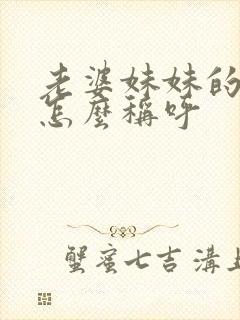 老婆妹妹的
怎麼稱呼
蟹蜜七吉溝上